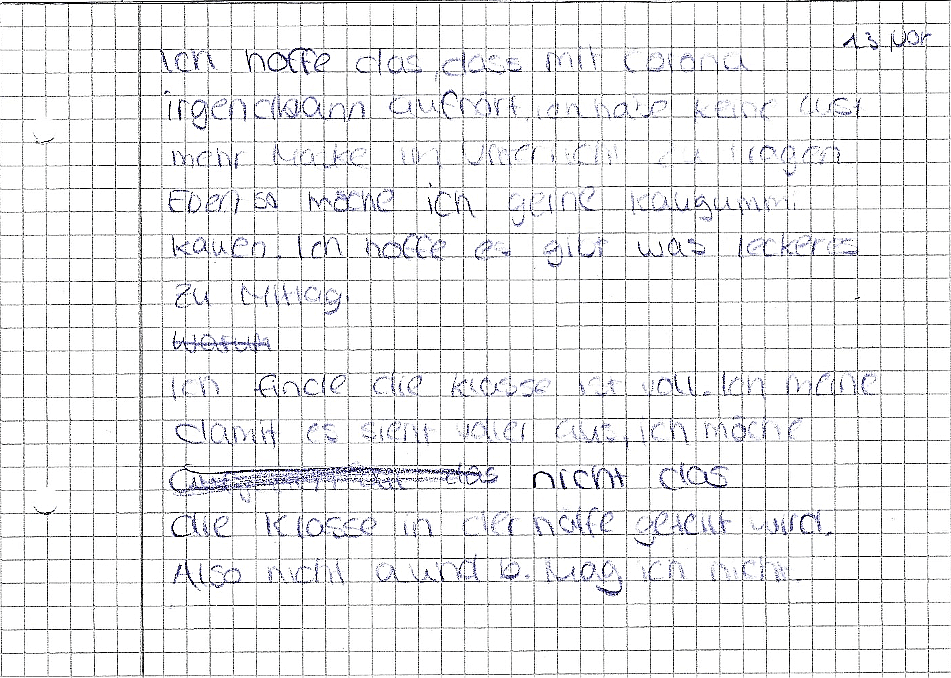 13 Nov
Ich hoffe das, dass mit Corona
irgendwann aufhört, ich habe keine lust
mehr Maske im Unterricht zu tragen
Eben so möchte ich gerne kaugummi
kauen. Ich hoffe es gibt was leckeres
zu Mittag.
Warum
Ich finde die klasse ist voll. Ich meine
damit es sieht voller aus, ich möchte
das nicht das
die Klasse in der hälfe geteilt wird.
Also nicht a und b. Mag ich nicht.